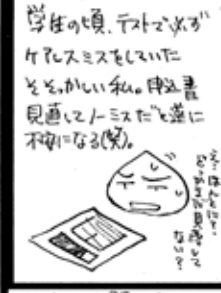 学生の頃、テストで必ず
ケアレスミスをしていた
そそっかしい私。申込書
見直してノーミスだと逆に
不安になる(笑)。
え?ほんとに?
どっかまだ見落として
ない?